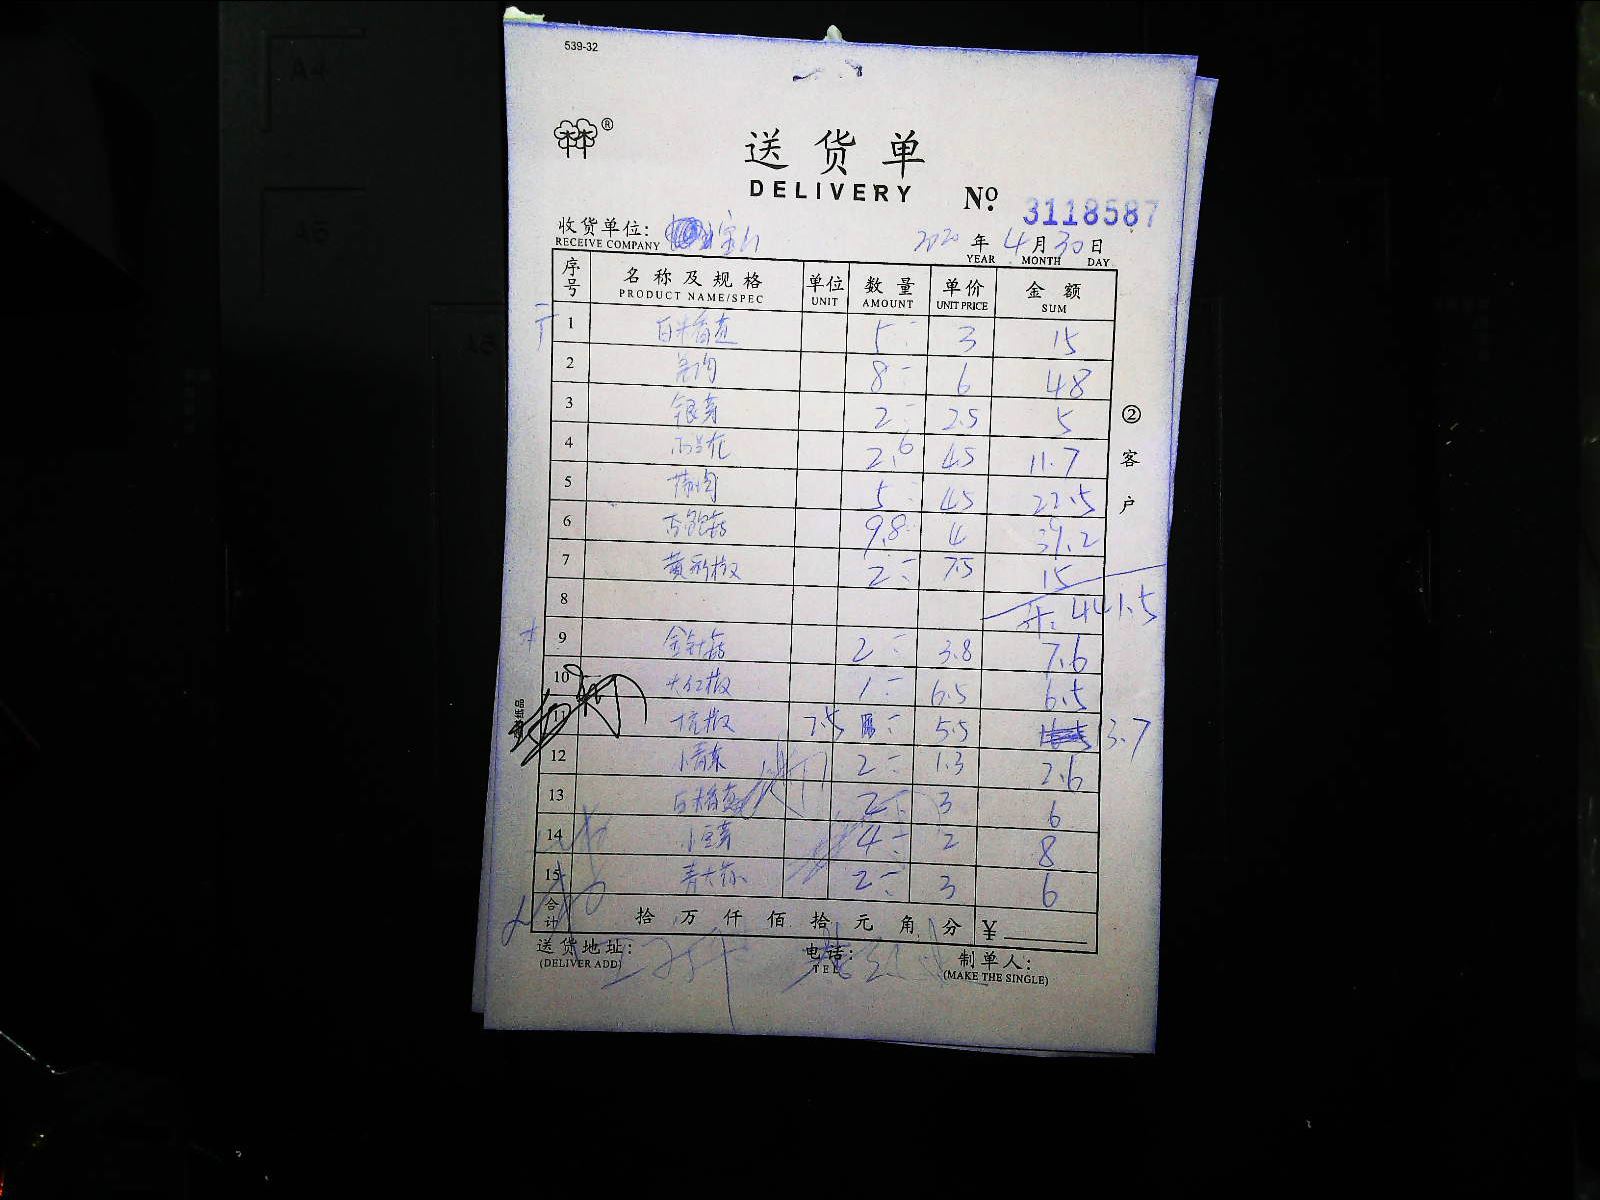 539-32
®
送货单
DELIVERY No. 3118587
收货单位: 宝山 2020年4月30日
RECEIVE COMPANY YEAR MONTH DAY
序号 名称及规格 单位 数量 单价 金额
PRODUCT NAME/SPEC UNIT AMOUNT UNIT PRICE SUM
1 白米苋 5 3 15
2 8 6 48
3 银芽 2 2.5 5
4 西兰花 2.6 4.5 11.7
5 5 4.5 22.5
6 杏鲍菇 9.8 4 39.2
7 黄彩椒 2 7.5 15
8 441.5
9 金针菇 2 3.8 7.6
10 大红椒 1 6.5 6.5
11 杭椒 5.5 3.7
12 小青菜 2 1.3 2.6
13 2 3 6
14 小豆芽 4 2 8
15 青大蒜 2 3 6
合计 拾万仟佰拾元角分 ¥
送货地址: 电话: 制单人:
(DELIVER ADD) TEL (MAKE THE SINGLE)
②客户